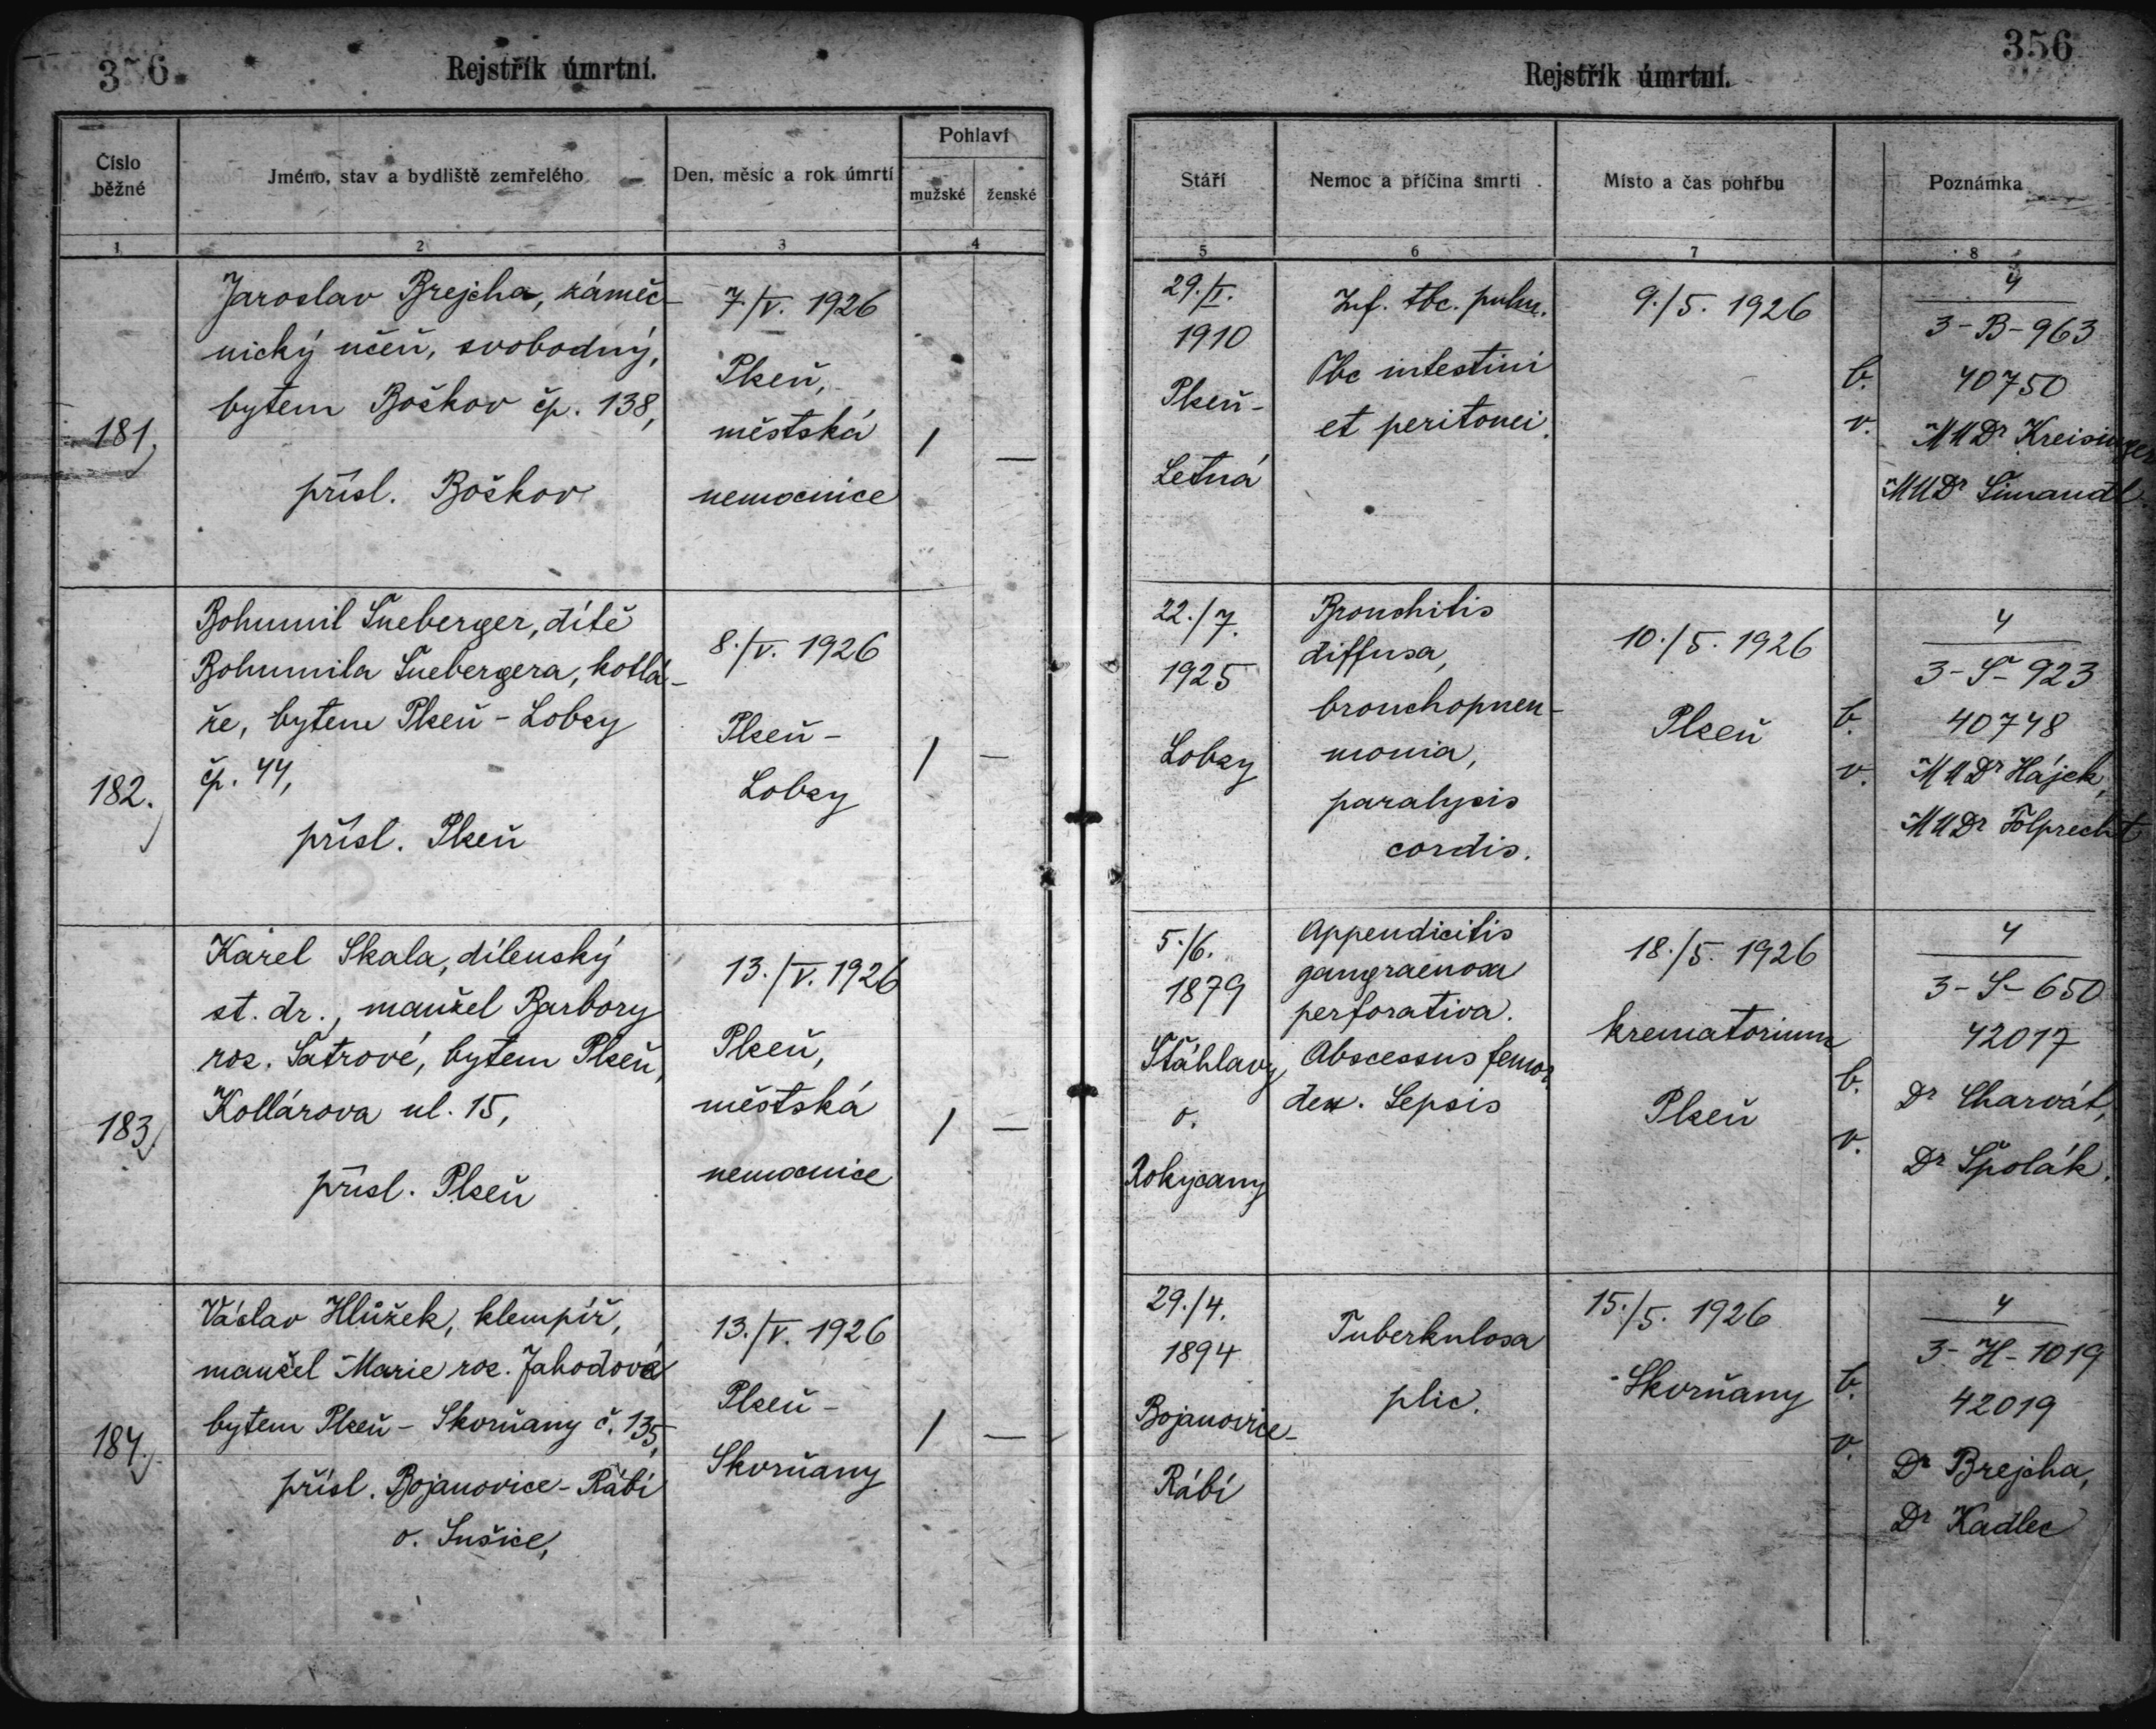 356.
Rejstřík úmrtní.
Číslo běžné
Jméno, stav a bydliště zemřelého
Den, měsíc a rok úmrtí
Pohlaví
mužské
ženské
1
2
3
4
181.
Jaroslav Brejcha, zámeč-
nický učeň, svobodný,
bytem Boškov čp. 138,
přísl. Boškov
7./V. 1926
Plzeň,
městská
nemocnice
/
—
182.
Bohumil Šneberger, dítě
Bohumila Šnebergera, kotlá-
ře, bytem Plzeň - Lobzy
čp. 44,
přísl. Plzeň
8./V. 1926
Plzeň -
Lobzy
/
—
183.
Karel Skala, dílenský
st. dr., manžel Barbory
roz. Šatrové, bytem Plzeň,
Kollárova ul. 15,
přísl. Plzeň
13./V. 1926
Plzeň,
městská
nemocnice
/
—
184.
Václav Hlůžek, klempíř,
manžel Marie roz. Jahodové
bytem Plzeň - Skvrňany č. 135,
přísl. Bojanovice - Rábí
o. Sušice,
13./V. 1926
Plzeň -
Skvrňany
/
—
356
Rejstřík úmrtní.
Stáří
Nemoc a příčina smrti
Místo a čas pohřbu
Poznámka
5
6
7
8
29./I.
1910
Plzeň -
Letná
Inf. tbc. pulm.
Tbc intestini
et peritonei.
9./5. 1926
b.
v.
4
3-B-963
40750
MUDr Kreisinger
MUDr Šimandl.
22./7.
1925
Lobzy
Bronchitis
diffusa,
bronchopneu-
monia,
paralysis
cordis.
10./5. 1926
Plzeň
b.
v.
4
3-Š-923
40748
MUDr Hájek,
MUDr Folprecht
5./6.
1879
Šťáhlavy
o.
Rokycany
Appendicitis
gangraenosa
perforativa.
Abscessus femor.
dex. Sepsis
18./5. 1926
krematorium
Plzeň
b.
v.
4
3-S-650
42017
Dr Charvát,
Dr Špolák.
29./4.
1894
Bojanovice-
Rábí
Tuberkulosa
plic.
15./5. 1926
Skvrňany
b.
v.
4
3-H-1019
42019
Dr Brejcha,
Dr Kadlec